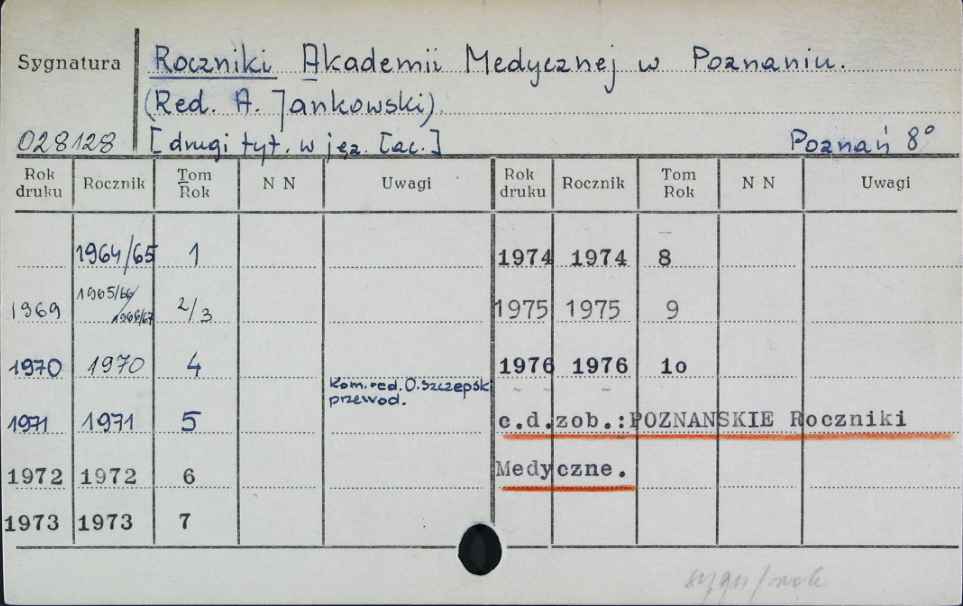 Sygnatura Roczniki Akademii Medycznej w Poznaniu.
(Red. A. Jankowski).
028128 [drugi tyt. w jęz. łac.] Poznań 8°
Rok druku Rocznik Tom Rok N N Uwagi Rok druku Rocznik Tom Rok N N Uwagi
1964/65 1 1974 1974 8
1969 1965/66/1966/67 2/3 1975 1975 9
1970 1970 4 1976 1976 10
Kom. red. O. Szczepsk
przewod.
1971 1971 5 c.d.zob.:POZNANSKIE Roczniki
1972 1972 6 Medyczne.
1973 1973 7